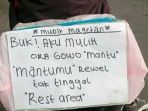 * mudik magetan *
BUK! AKU MULIH
ORA GOWO "mantu"
"MANTUMU" REWEL
tak tinggal
"Rest area"